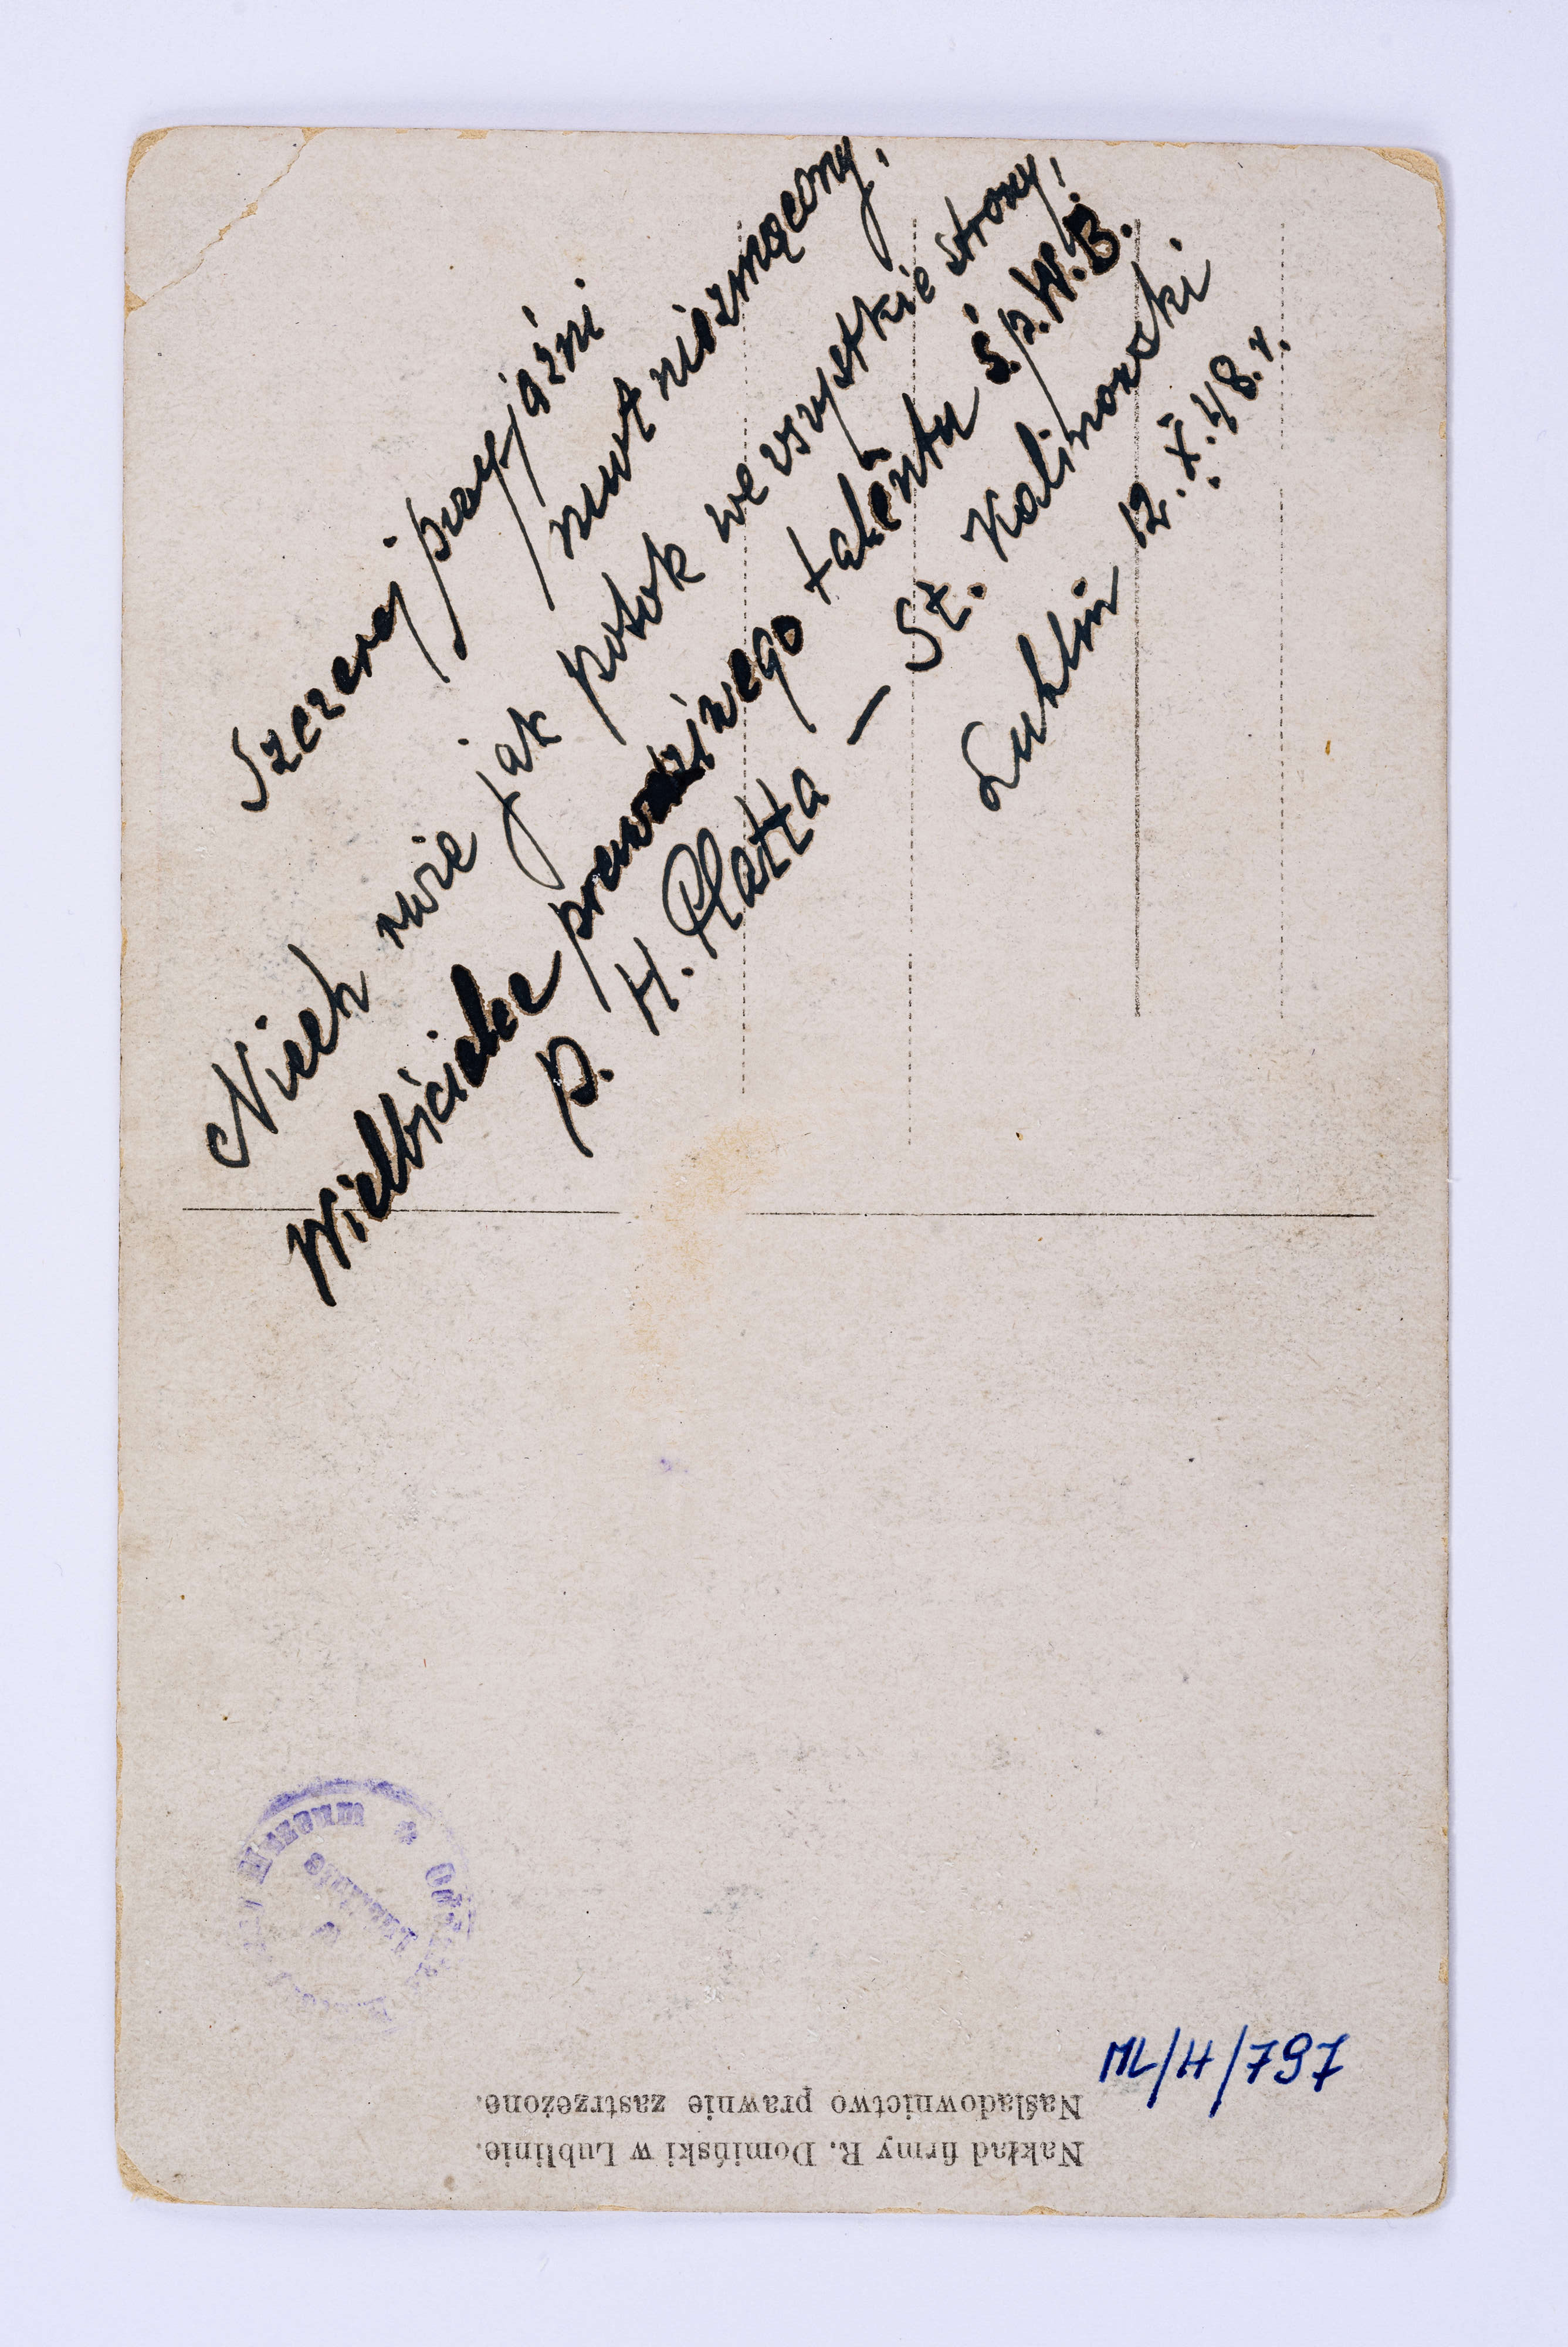 Szczerej przyjaźni
nurt niezmącony,
Niech rwie jak potok we wszystkie strony!
Wielbicielce prawdziwego talentu ś.p. W.B.
p. H. Platta — St. Kalinowski.
Lublin 12.X.48.r.
Muzeum *
Lublinie
ML/H/797
Nakład firmy R. Domiński w Lublinie.
Naśladownictwo prawnie zastrzeżone.